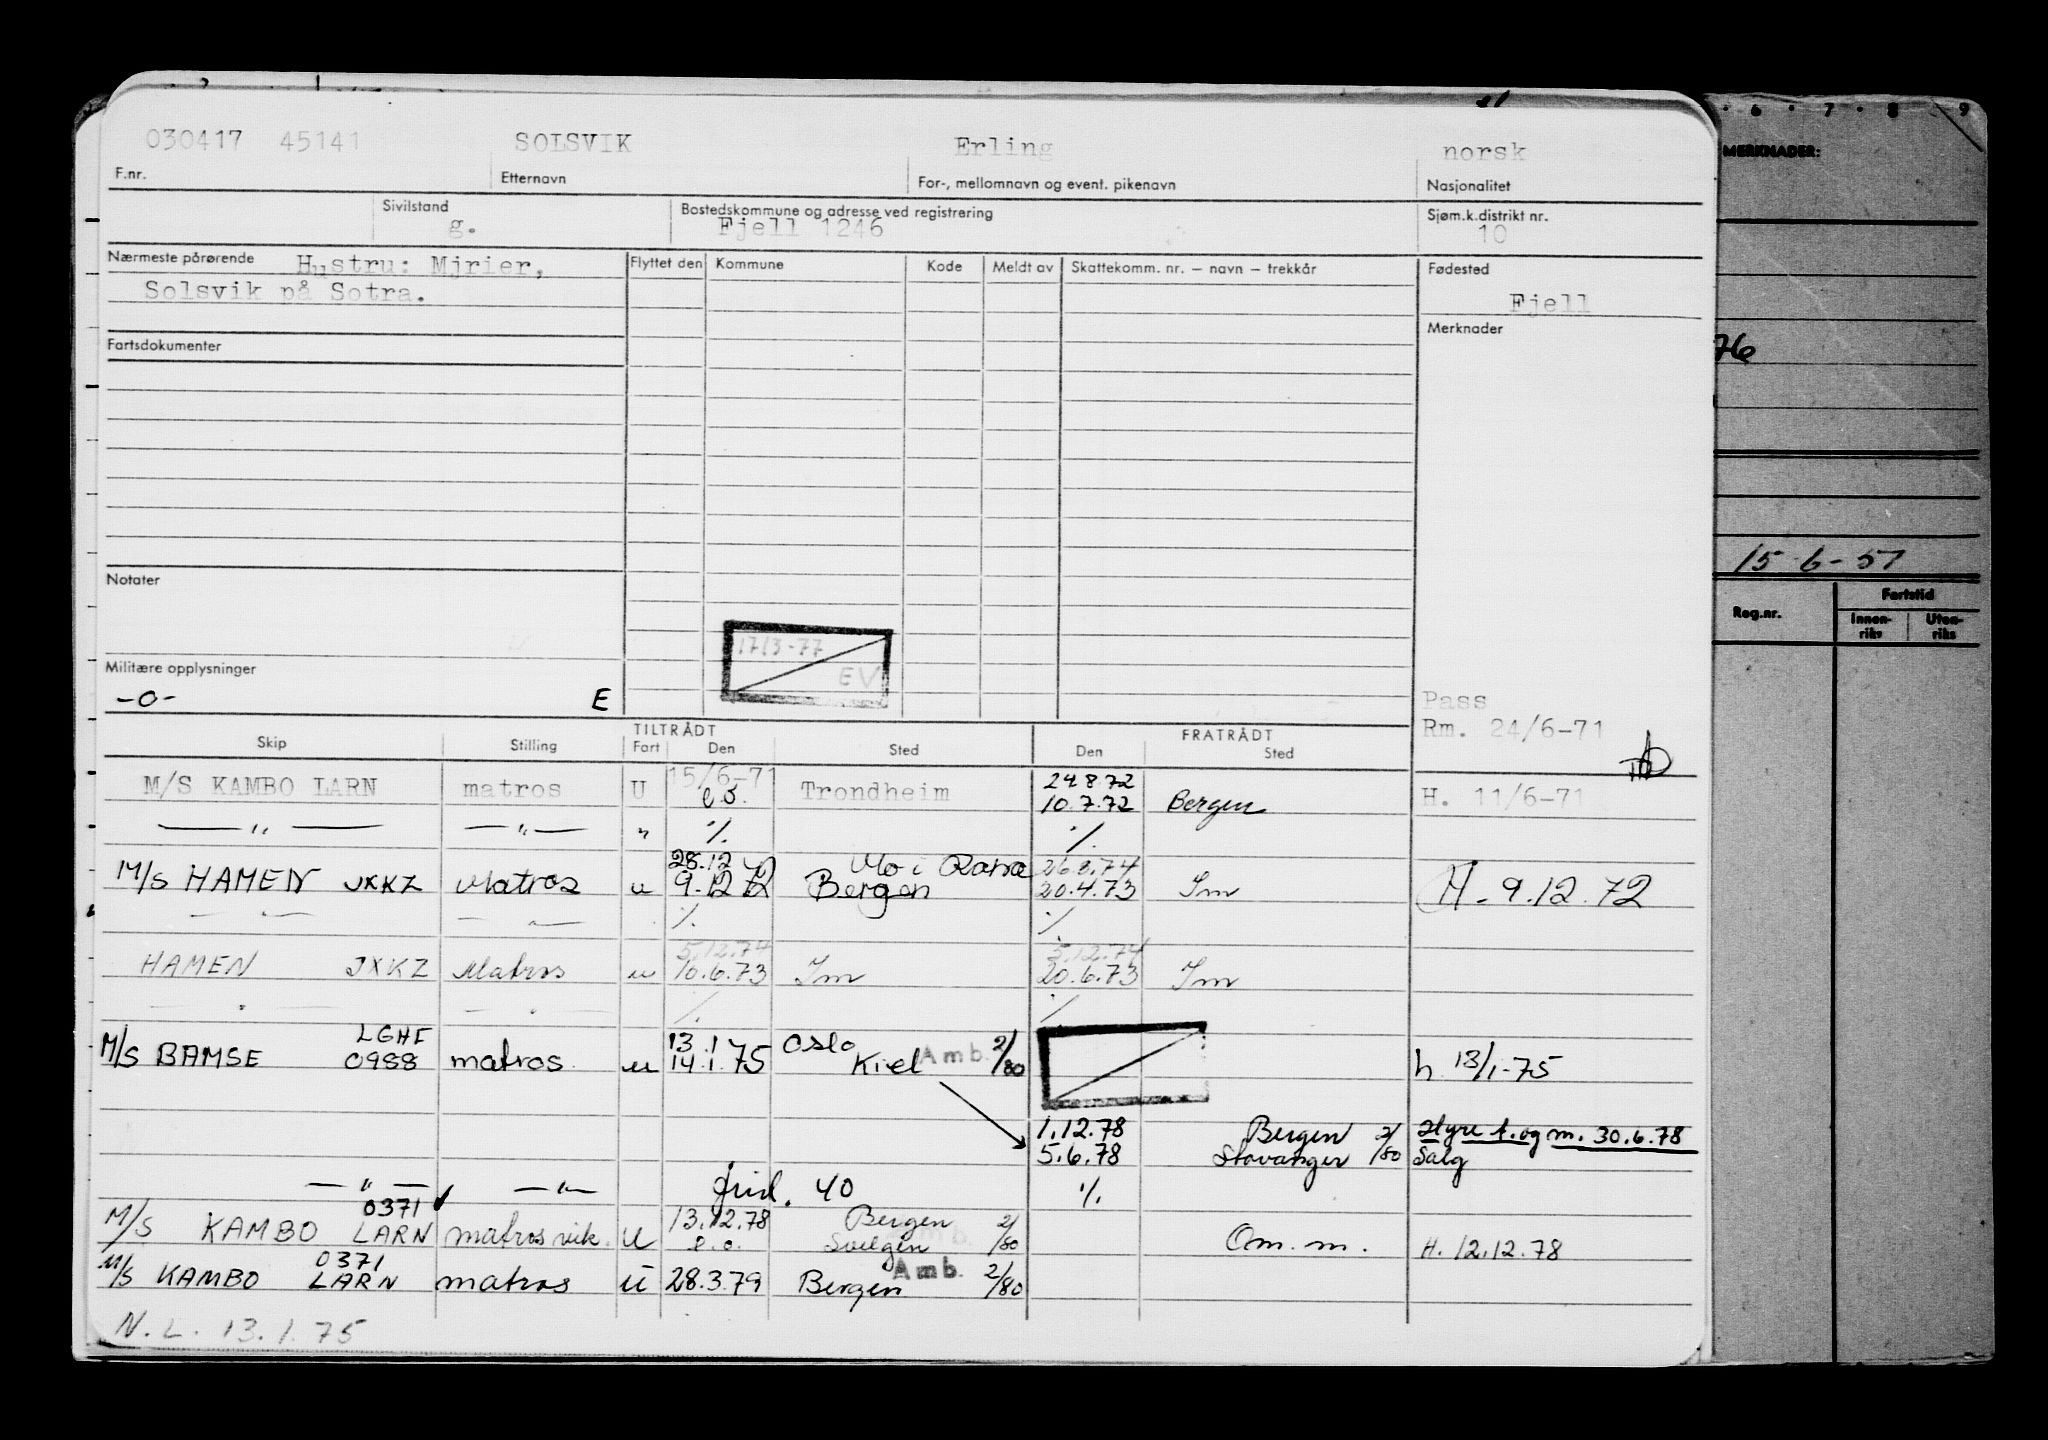 030417 45141 SOLSVIK Erling norsk
F.nr. Etternavn For-, mellomnavn og event. pikenavn Nasjonalitet
Sivilstand Bostedskommune og adresse ved registrering Sjøm.k.distrikt nr.
g. Fjell 1246 10
Nærmeste pårørende Hustru: Mjrier, Flyttet den Kommune Kode Meldt av Skattekomm. nr. – navn – trekkår Fødested
Solsvik på Sotra. Fjell
Merknader
Fartsdokumenter
Notater
17/3-77
EV
Militære opplysninger
-0- E
Pass
Rm. 24/6-71
TILTRÅDT FRATRÅDT
Skip Stilling Fart Den Sted Den Sted
15/6-71 24.8.72
M/S KAMBO LARN matros U e.o. Trondheim 10.7.72 Bergen H. 11/6-71
— " — — " — " ·/. ·/.
28.12 72 Mo i Rana 26.8.74
M/S HAMEN JXKZ Matros u 9.12 72 Bergen 20.4.73 Im H. 9.12.72
— " — — " — ·/. ·/.
5.12.74 5.12.74
HAMEN JXKZ Matros u 10.6.73 Im 20.6.73 Im
— " — — " — ·/. ·/.
LGHF 13.1 Oslo
M/S BAMSE 0988 matros u 14.1.75 Kiel Amb. 2/80 h 13/1-75
1.12.78 Bergen 2/80 styre t.og m. 30.6.78
5.6.78 Stavanger Salg
— " — — " — frid. 40 ·/.
0371 13.12.78 Bergen
M/S KAMBO LARN matros vik. U e.o. Svelgen 2/80 Om. m. H. 12.12.78
0371 Amb.
M/S KAMBO LARN matros u 28.3.79 Bergen 2/80
N.L. 13.1.75
6 · 7 · 8 · 9
MERKNADER:
76
15-6-57
Reg.nr. Fartstid
Innen-riks Uten-riks